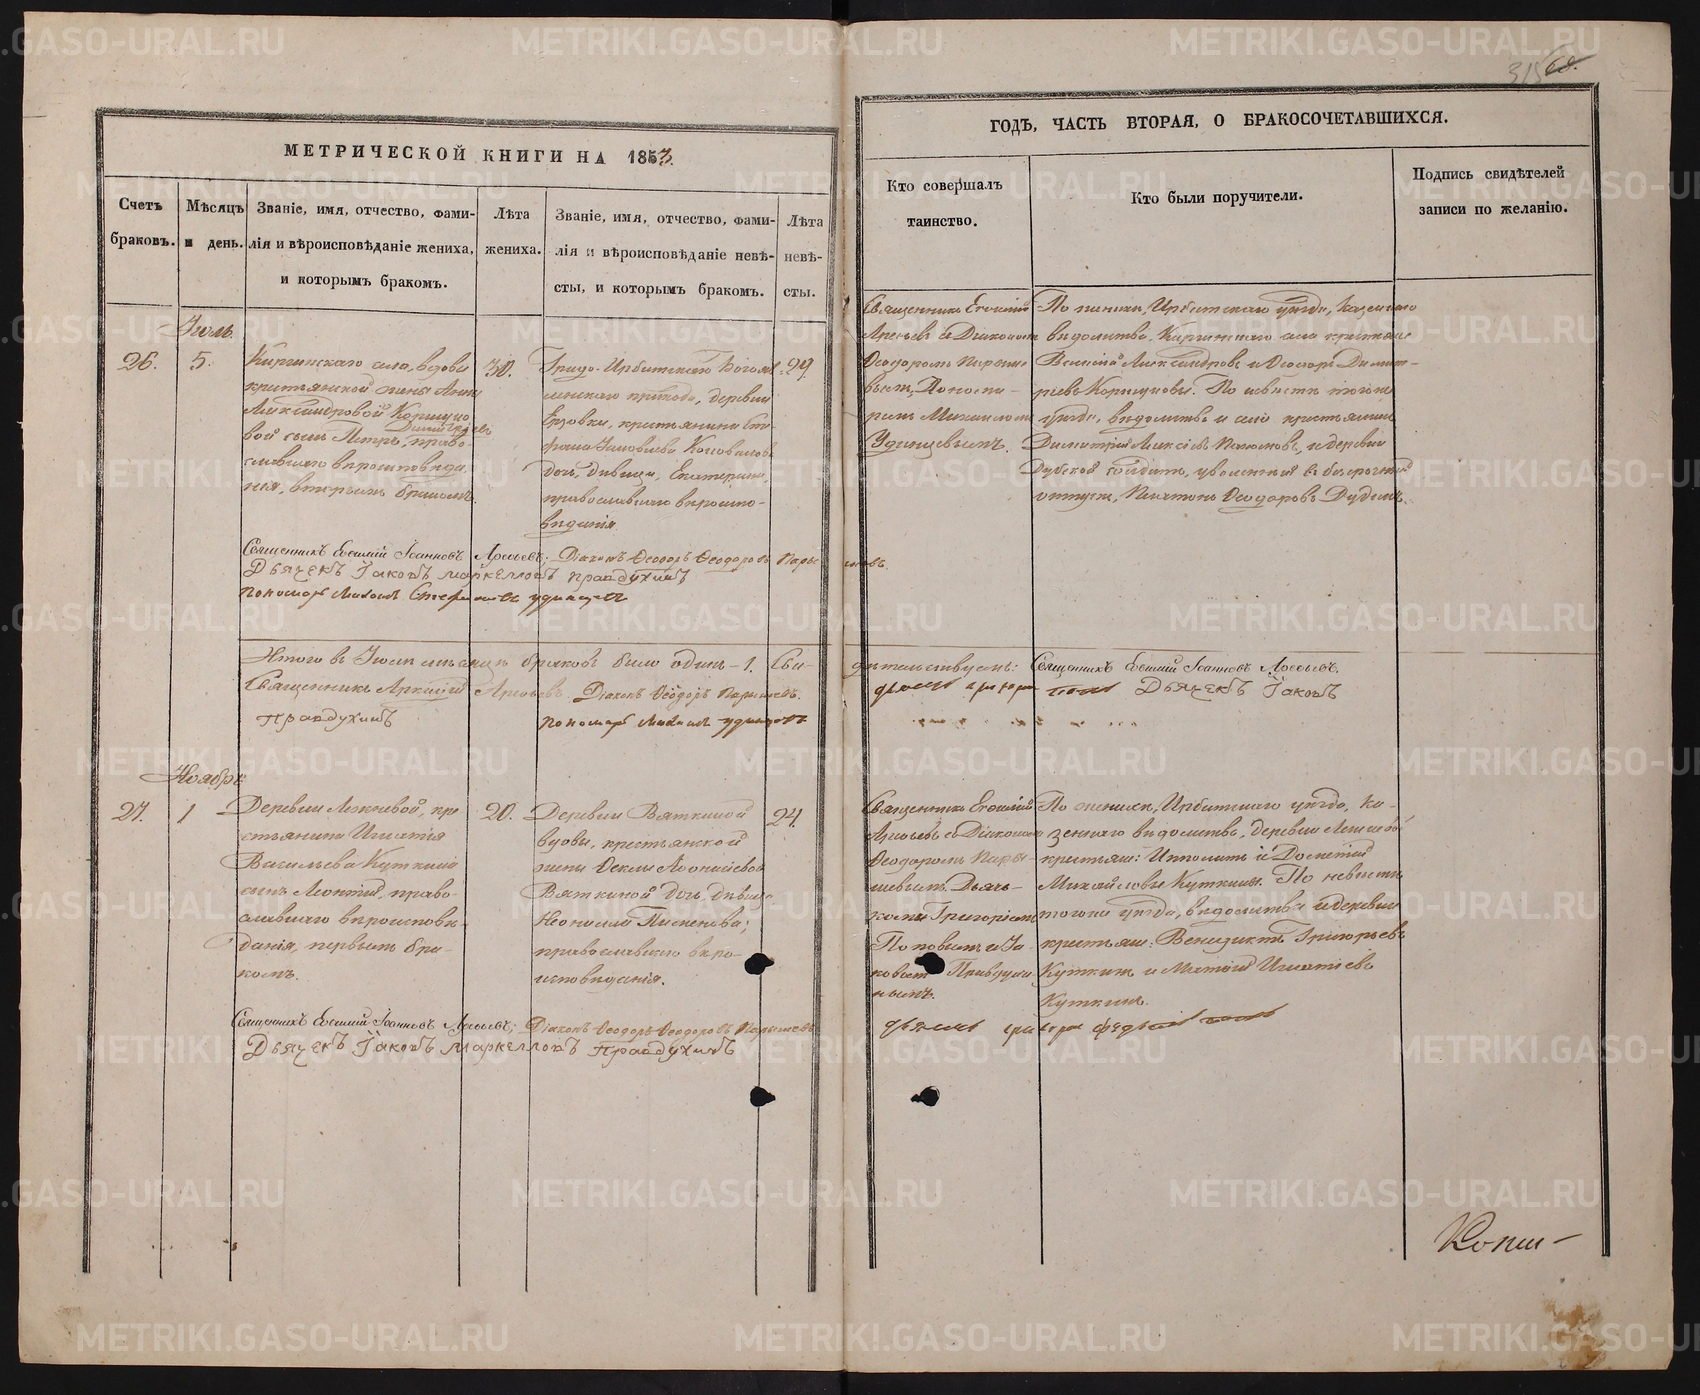 315 68.
МЕТРИЧЕСКОЙ КНИГИ НА 1853.
ГОДЪ, ЧАСТЬ ВТОРАЯ, О БРАКОСОЧЕТАВШИХСЯ.
Счетъ
браковъ.
Мѣсяцъ
и день.
Званіе, имя, отчество, фами-
лія и вѣроисповѣданіе жениха,
и которымъ бракомъ.
Лѣта
жениха.
Званіе, имя, отчество, фами-
лія и вѣроисповѣданіе невѣ-
сты, и которымъ бракомъ.
Лѣта
невѣ-
сты.
Кто совершалъ
таинство.
Кто были поручители.
Подпись свидѣтелей
записи по желанію.
Іюль
26.
5.
Киргинскаго села, вдовы
крестьянской жены Анны
Александровой Коршуно
Димитріевъ
вой сынъ Петръ, право
славнаго вѣроисповѣда
нія, вторымъ бракомъ.
30.
Градо-Ирбитскаго Богояв
ленскаго прихода, деревни
крестьянина Сте
фана Коновалова
дочь, дѣвица, Екатерина,
православнаго вѣроиспо-
вѣданія.
29
Священникъ Евѳимій
Арефьевъ съ Діакономъ
Ѳеодоромъ Пары­ше
вымъ, Понома-
ремъ Михаиломъ
Удинцевымъ.
По женихѣ, Ирбитскаго уѣзда, казеннаго
вѣдомства, Киргинскаго села крестьяне
Василій Александровъ и Ѳеодоръ Димит-
ріевъ Коршуновы. По невѣстѣ тогоже
уѣзда, вѣдомства и села крестьянинъ
Димитрій Алексѣевъ и деревни
Дубской солдатъ, уволенный въ безсрочный
отпускъ, Платонъ Ѳеодоровъ Дудинъ.
Священникъ Евѳимій Іоанновъ Арефьевъ; Діаконъ Ѳеодоръ Ѳеодоровъ Пары шевъ.
Дьячекъ Іаковъ Маркелловъ Правдухинъ
Пономарь Михаилъ Стефановъ Удинцевъ
Итого въ Іюлѣ мѣсяцѣ браковъ было одинъ - 1. Сви-
дѣтельствуемъ: Священникъ Евѳимій Іоанновъ Арефьевъ.
Священникъ Аркадій Арефьевъ Діаконъ Ѳеодоръ Парышевъ.
Дьячекъ Григорій Поповъ Дьячекъ Іаковъ
Правдухинъ Пономарь Михаилъ Удинцевъ
Ноябрь
27.
1
Деревни Лопшевой, кре
стьянина Игнатія
Васильева Куткина
сынъ Леонтій, право-
славнаго вѣроисповѣ-
данія, первымъ бра-
комъ.
20.
Деревни Вяткиной
вдовы, крестьянской
жены Ѳеклы Леонтіевой
Вяткиной дочь, дѣвица
Неонилла
православнаго вѣро-
исповѣданія.
24.
Священникъ Евѳимій
Арефьевъ съ Діакономъ
Ѳеодоромъ Пары-
шевымъ, Дьяч-
комъ Григоріемъ
Поповымъ и Іа-
ковомъ Правдухи
нымъ.
По женихѣ, Ирбитскаго уѣзда, Ка-
зеннаго вѣдомства, деревни Лопшевой
крестьян: Ипполитъ и Дометій
Михайловы Куткины. По невѣстѣ
тогоже уѣзда, вѣдомства и деревни
крестьян: Венедиктъ Григорьевъ
Куткинъ и Матвій Игнатіевъ
Куткинъ.
Священникъ Евѳимій Іоанновъ Арефьевъ; Діаконъ Ѳеодоръ Ѳеодоровъ Парышевъ
Дьячекъ Іаковъ Маркелловъ Правдухинъ
METRIKI.GASO-URAL.RU